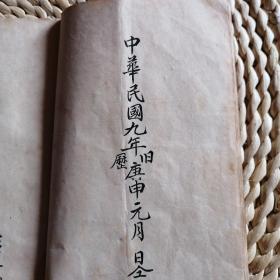 中華民國九年旧曆庚申元月 日仝